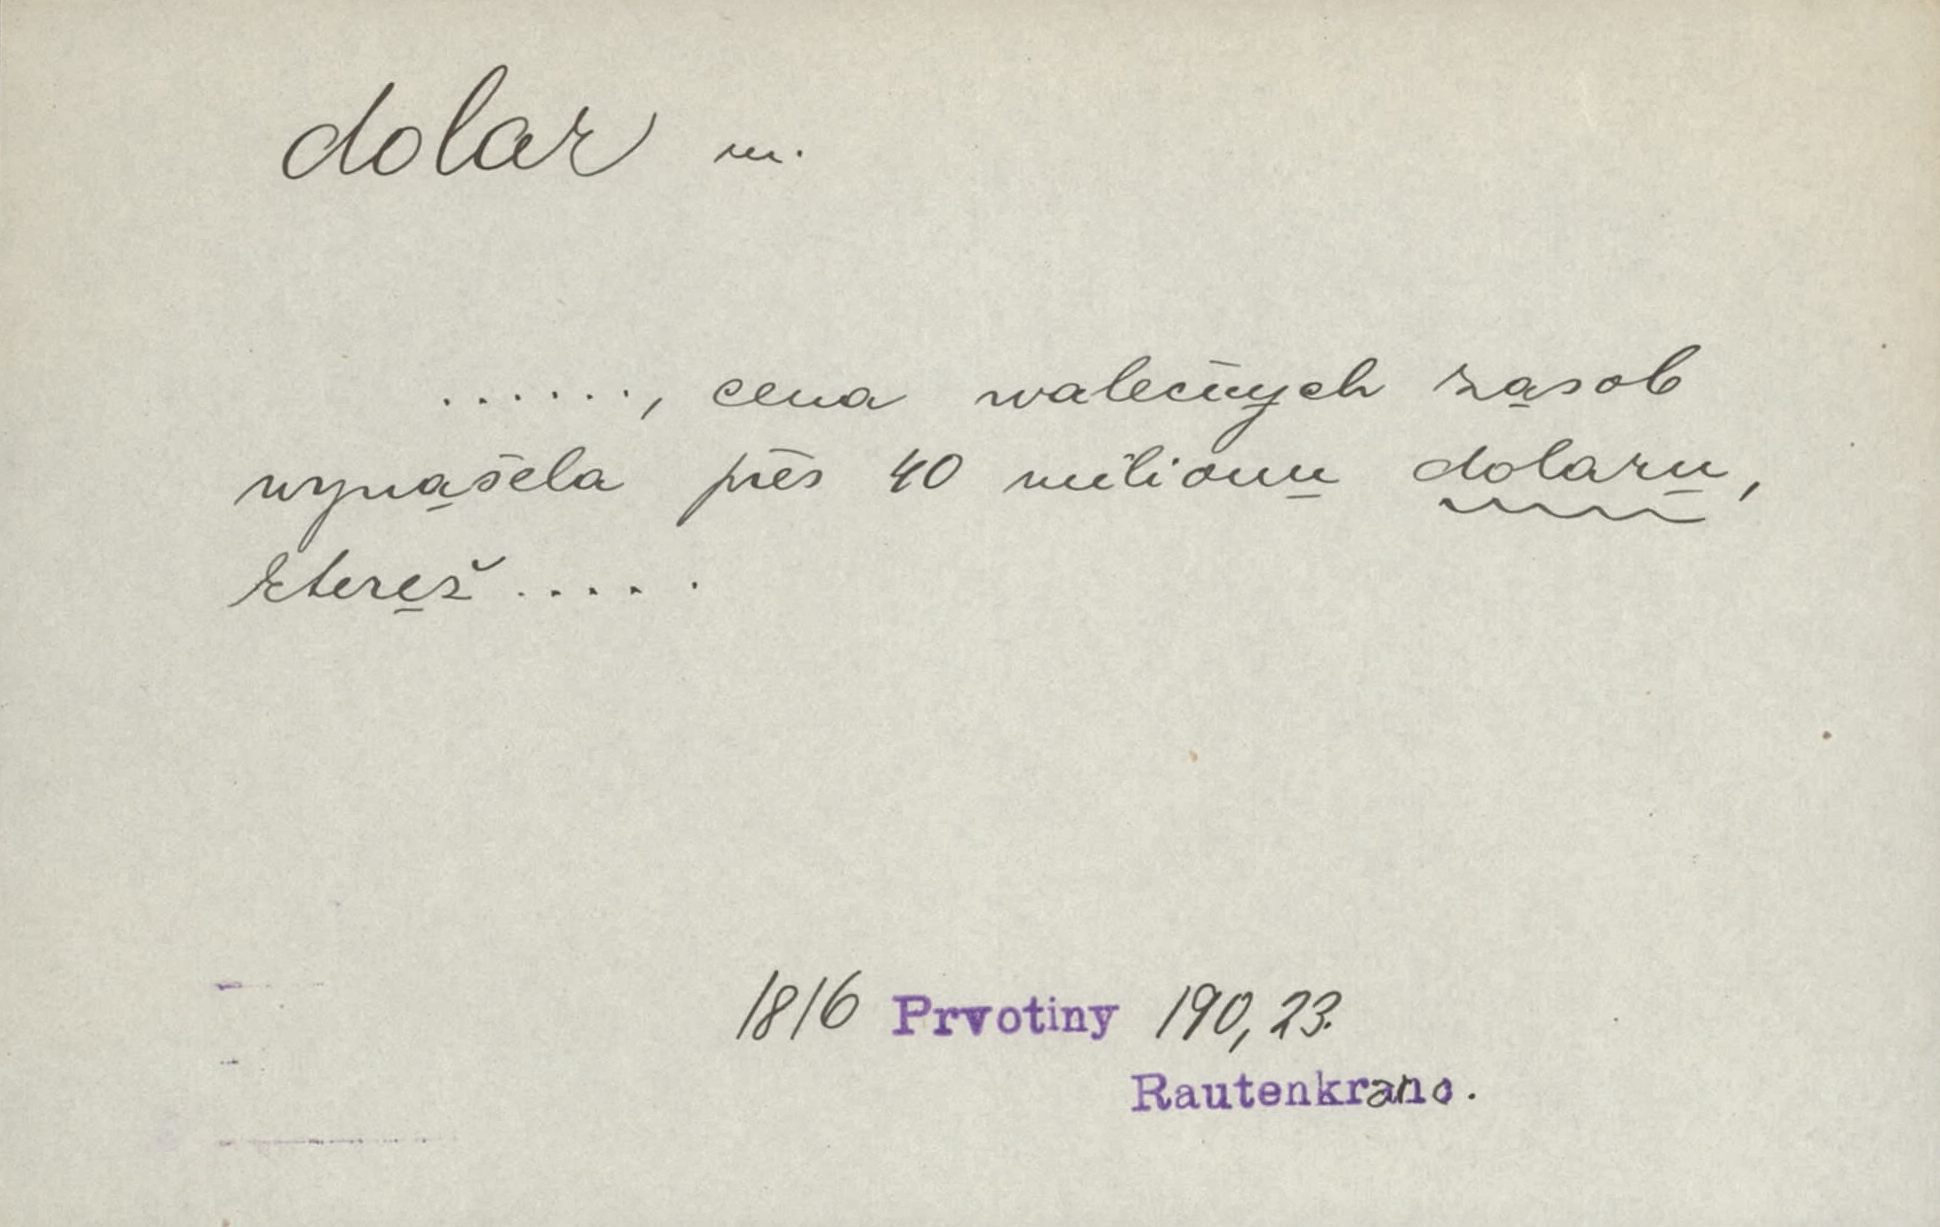 dolar m.
......, cena walečnych zasob
wynašela přes 40 milionu dolaru,
kterež.....
1816 Prvotiny 190, 23.
Rautenkranc.